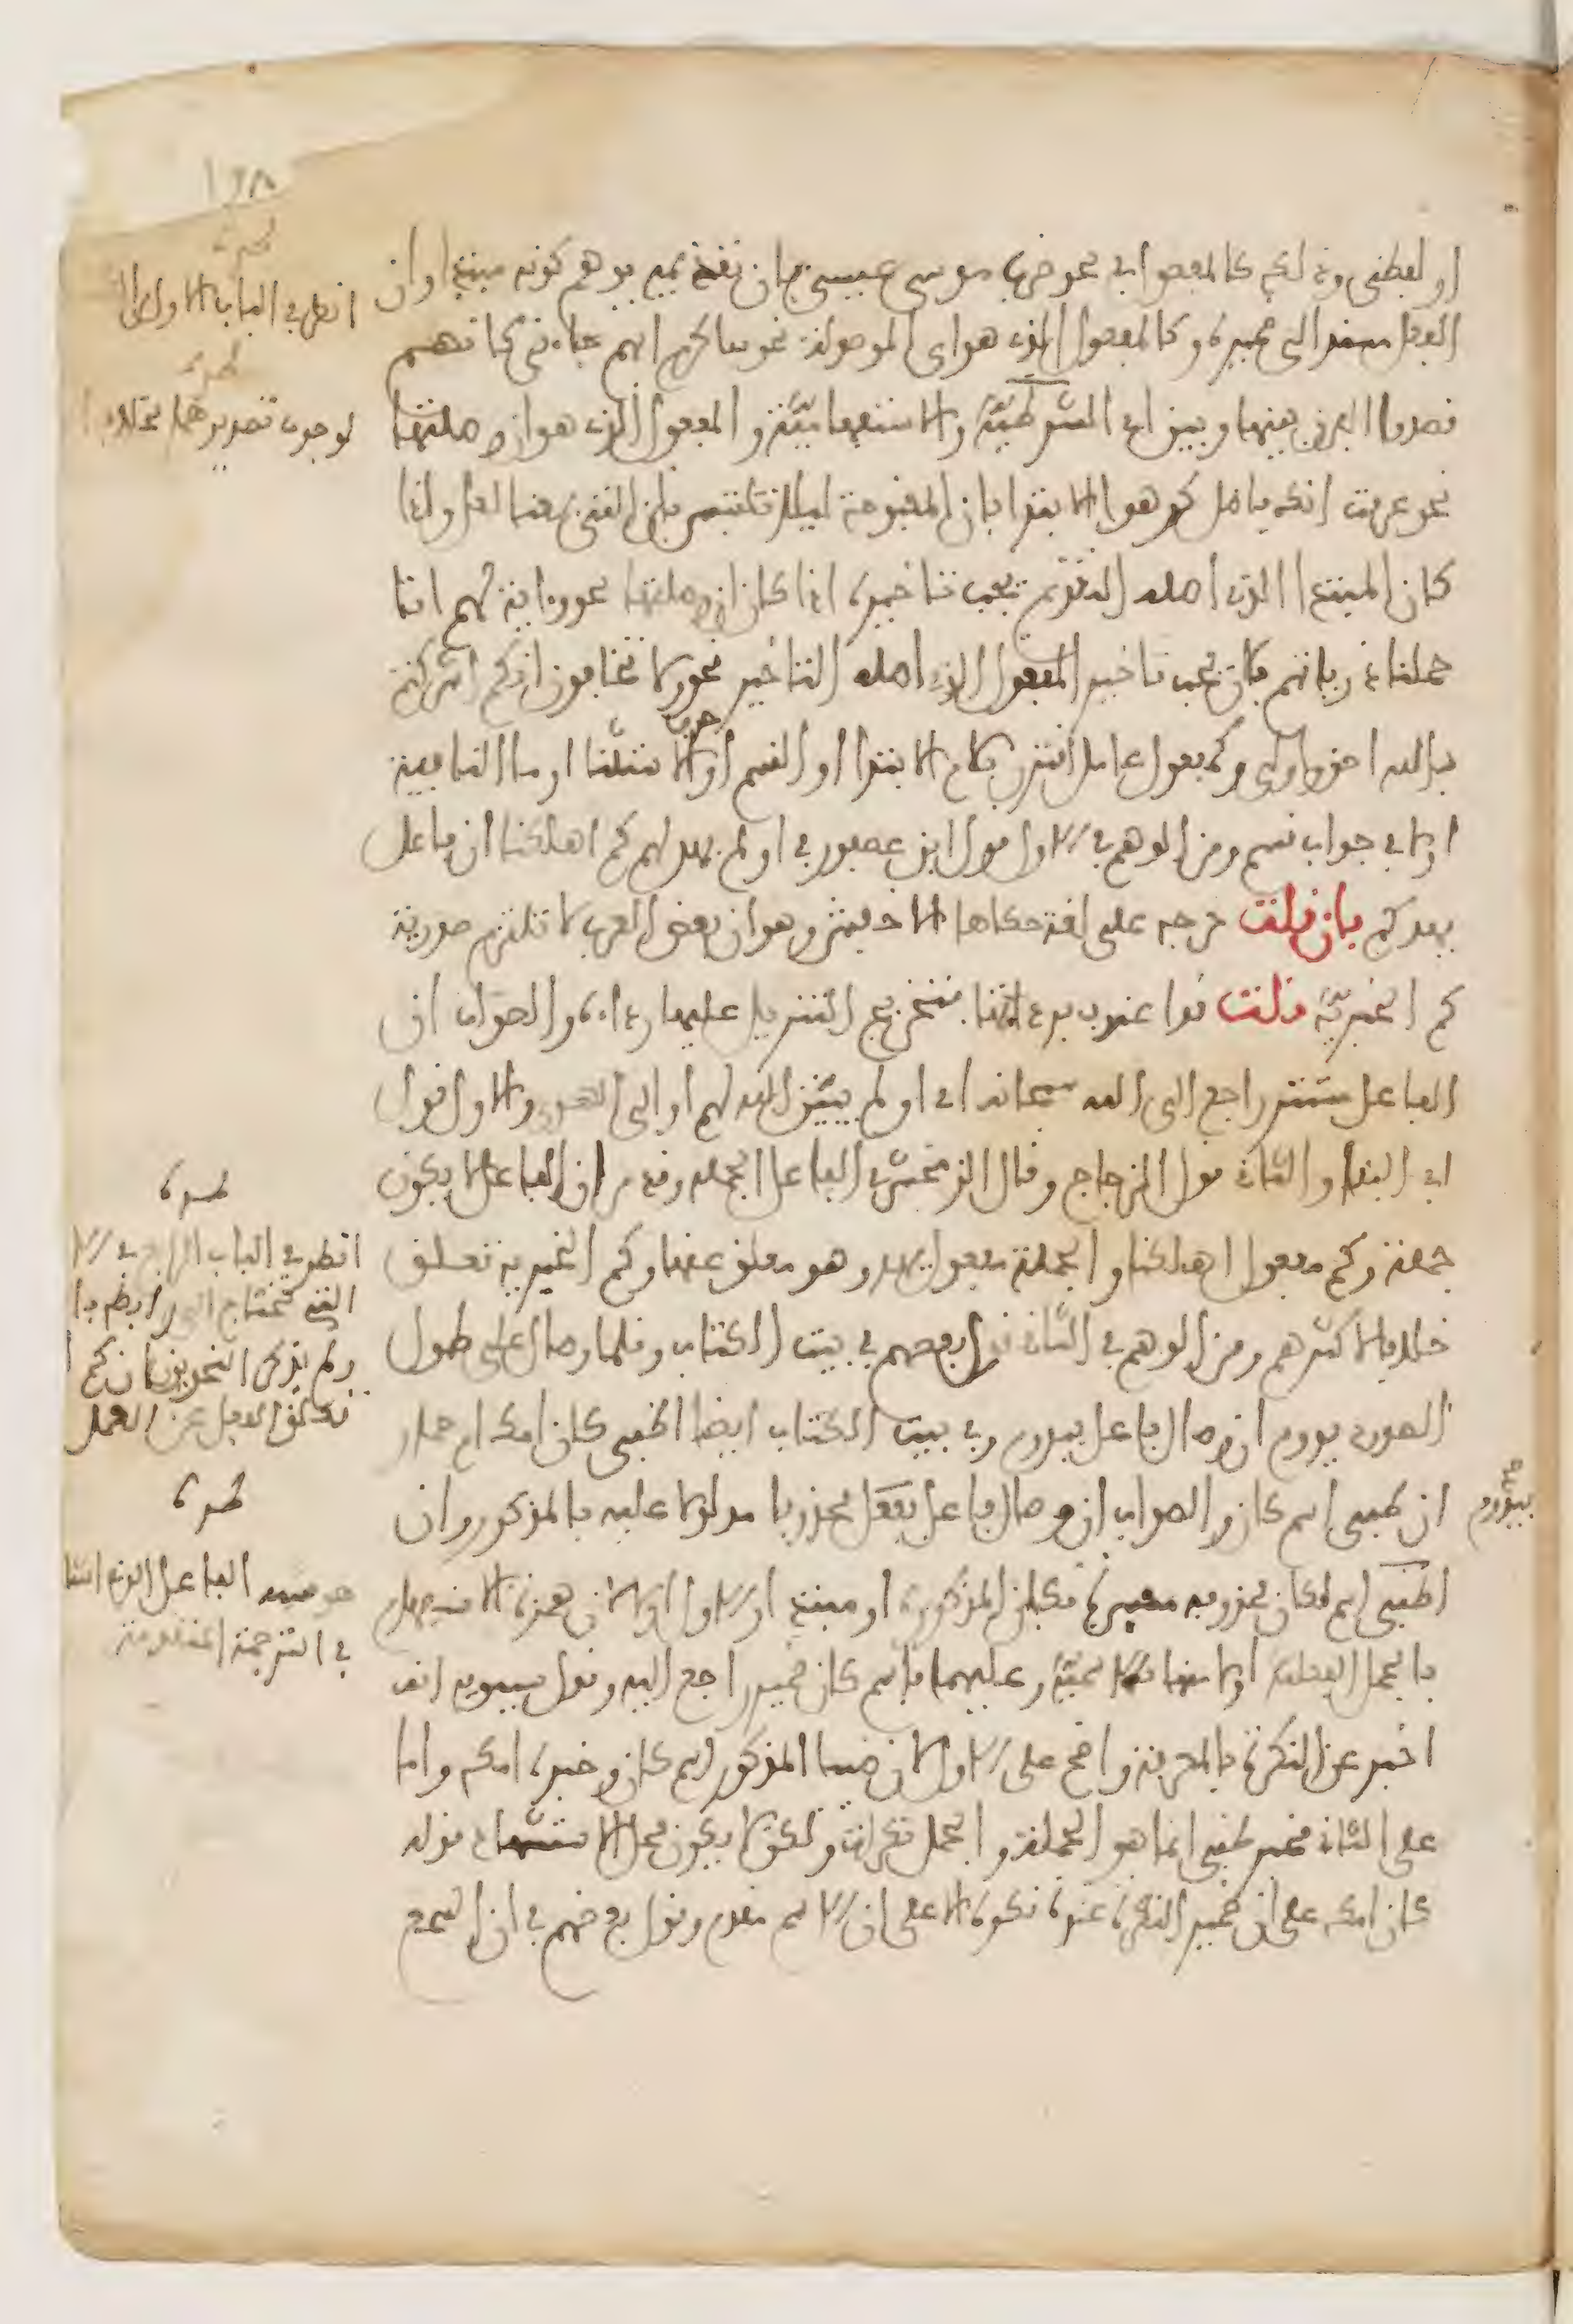 ١٩٨
او لفظي وذلك كالمفعول في نحو ضرب موسى عيسى فان تقديمه يوهم كونه مبتدا وان
الفعل مسند الى ضميره وكالمفعول الذي هو اي الموصولة نحو ساكرم ايهم جاءني كانهم
قصدوا الفرق بينها وبين اي الشرطية والاستفهامية والمفعول الذي هو ان وصلتها
نحو عرفت انك فاضل كرهوا الابتدا بان المفتوحة ليلا تلتبس بان التي بمعنى لعل واذا
كان المبتدا الذي اصله التقديم يجب تاخيره اذا كان ان وصلتها نحو وءاية لهم انا
حملنا ذرياتهم فان يجب تاخير المفعول الذي اصله التاخير نحو ولا تخافون انكم اشركتم
بالله احق واولى وكمفعول عامل اقترن بلام الابتدا او القسم او حرف الاستثنا او ما النافية
او لا في جواب قسم ومن الوهم في الاول قول ابن عصفور في اولم يهد لهم كم اهلكنا ان فاعل
يهد كم فان قلت خرجه على لغة حكاها الاخفش وهو ان بعض العرب لا تلتزم صدرية
كم الخبرية قلت قد اعترف برداءتها فتخريج التنزيل عليها رداءة والصواب ان
الفاعل مستتر راجع الى الله سبحانه اي اولم يبين الله لهم او الى الهدى والاول قول
ابي البقا والثاني قول الزجاج وقال الزمخشري الفاعل الجملة وقد مر ان الفاعل لا يكون
جملة وكم مفعول اهلكنا والجملة مفعول يهد وهو معلق عنها وكم الخبرية تعلق
خلافا لاكثرهم ومن الوهم في الثاني قول بعضهم في بيت الكتاب وقلما وصال على طول
الصدود يدوم ان وصال فاعل بيدوم وفي بيت الكتاب ايضا اظبي كان امك ام حمار
ان ظبي اسم كان والصواب ان وصال فاعل بفعل محذوف مدلولا عليه بالمذكور وان
اظبي اسم لكان محذوفة مفسرة بكان المذكورة او مبتدا والاول اولى لان همزة الاستفهام
بالجمل الفعلية اولى منها بالاسمية وعليهما فاسم كان ضمير راجع اليه وقول سيبويه انه
اخبر عن النكرة بالمعرفة واضح على الاول لان ظبيا المذكور اسم كان وخبره امك واما
على الثاني فخبر ظبي انما هو الجملة والجمل نكرات ولكن يكون محل الاستشهاد قوله
كان امك على ان ضمير النكرة عنده نكرة لا على ان الاسم مقدم وقول بعضهم في ان السمع
طرة
انظر في الباب الاول
طرة
لوجوب تصديرهما بخلاف
طرة
انظر في الباب الرابع في
التي تحتاج الى رابط
ولم يذكر النحويون ان كم
تعلق الفعل عن العمل
طرة
الفاعل
في الترجمة المتقدمة
بيدوم